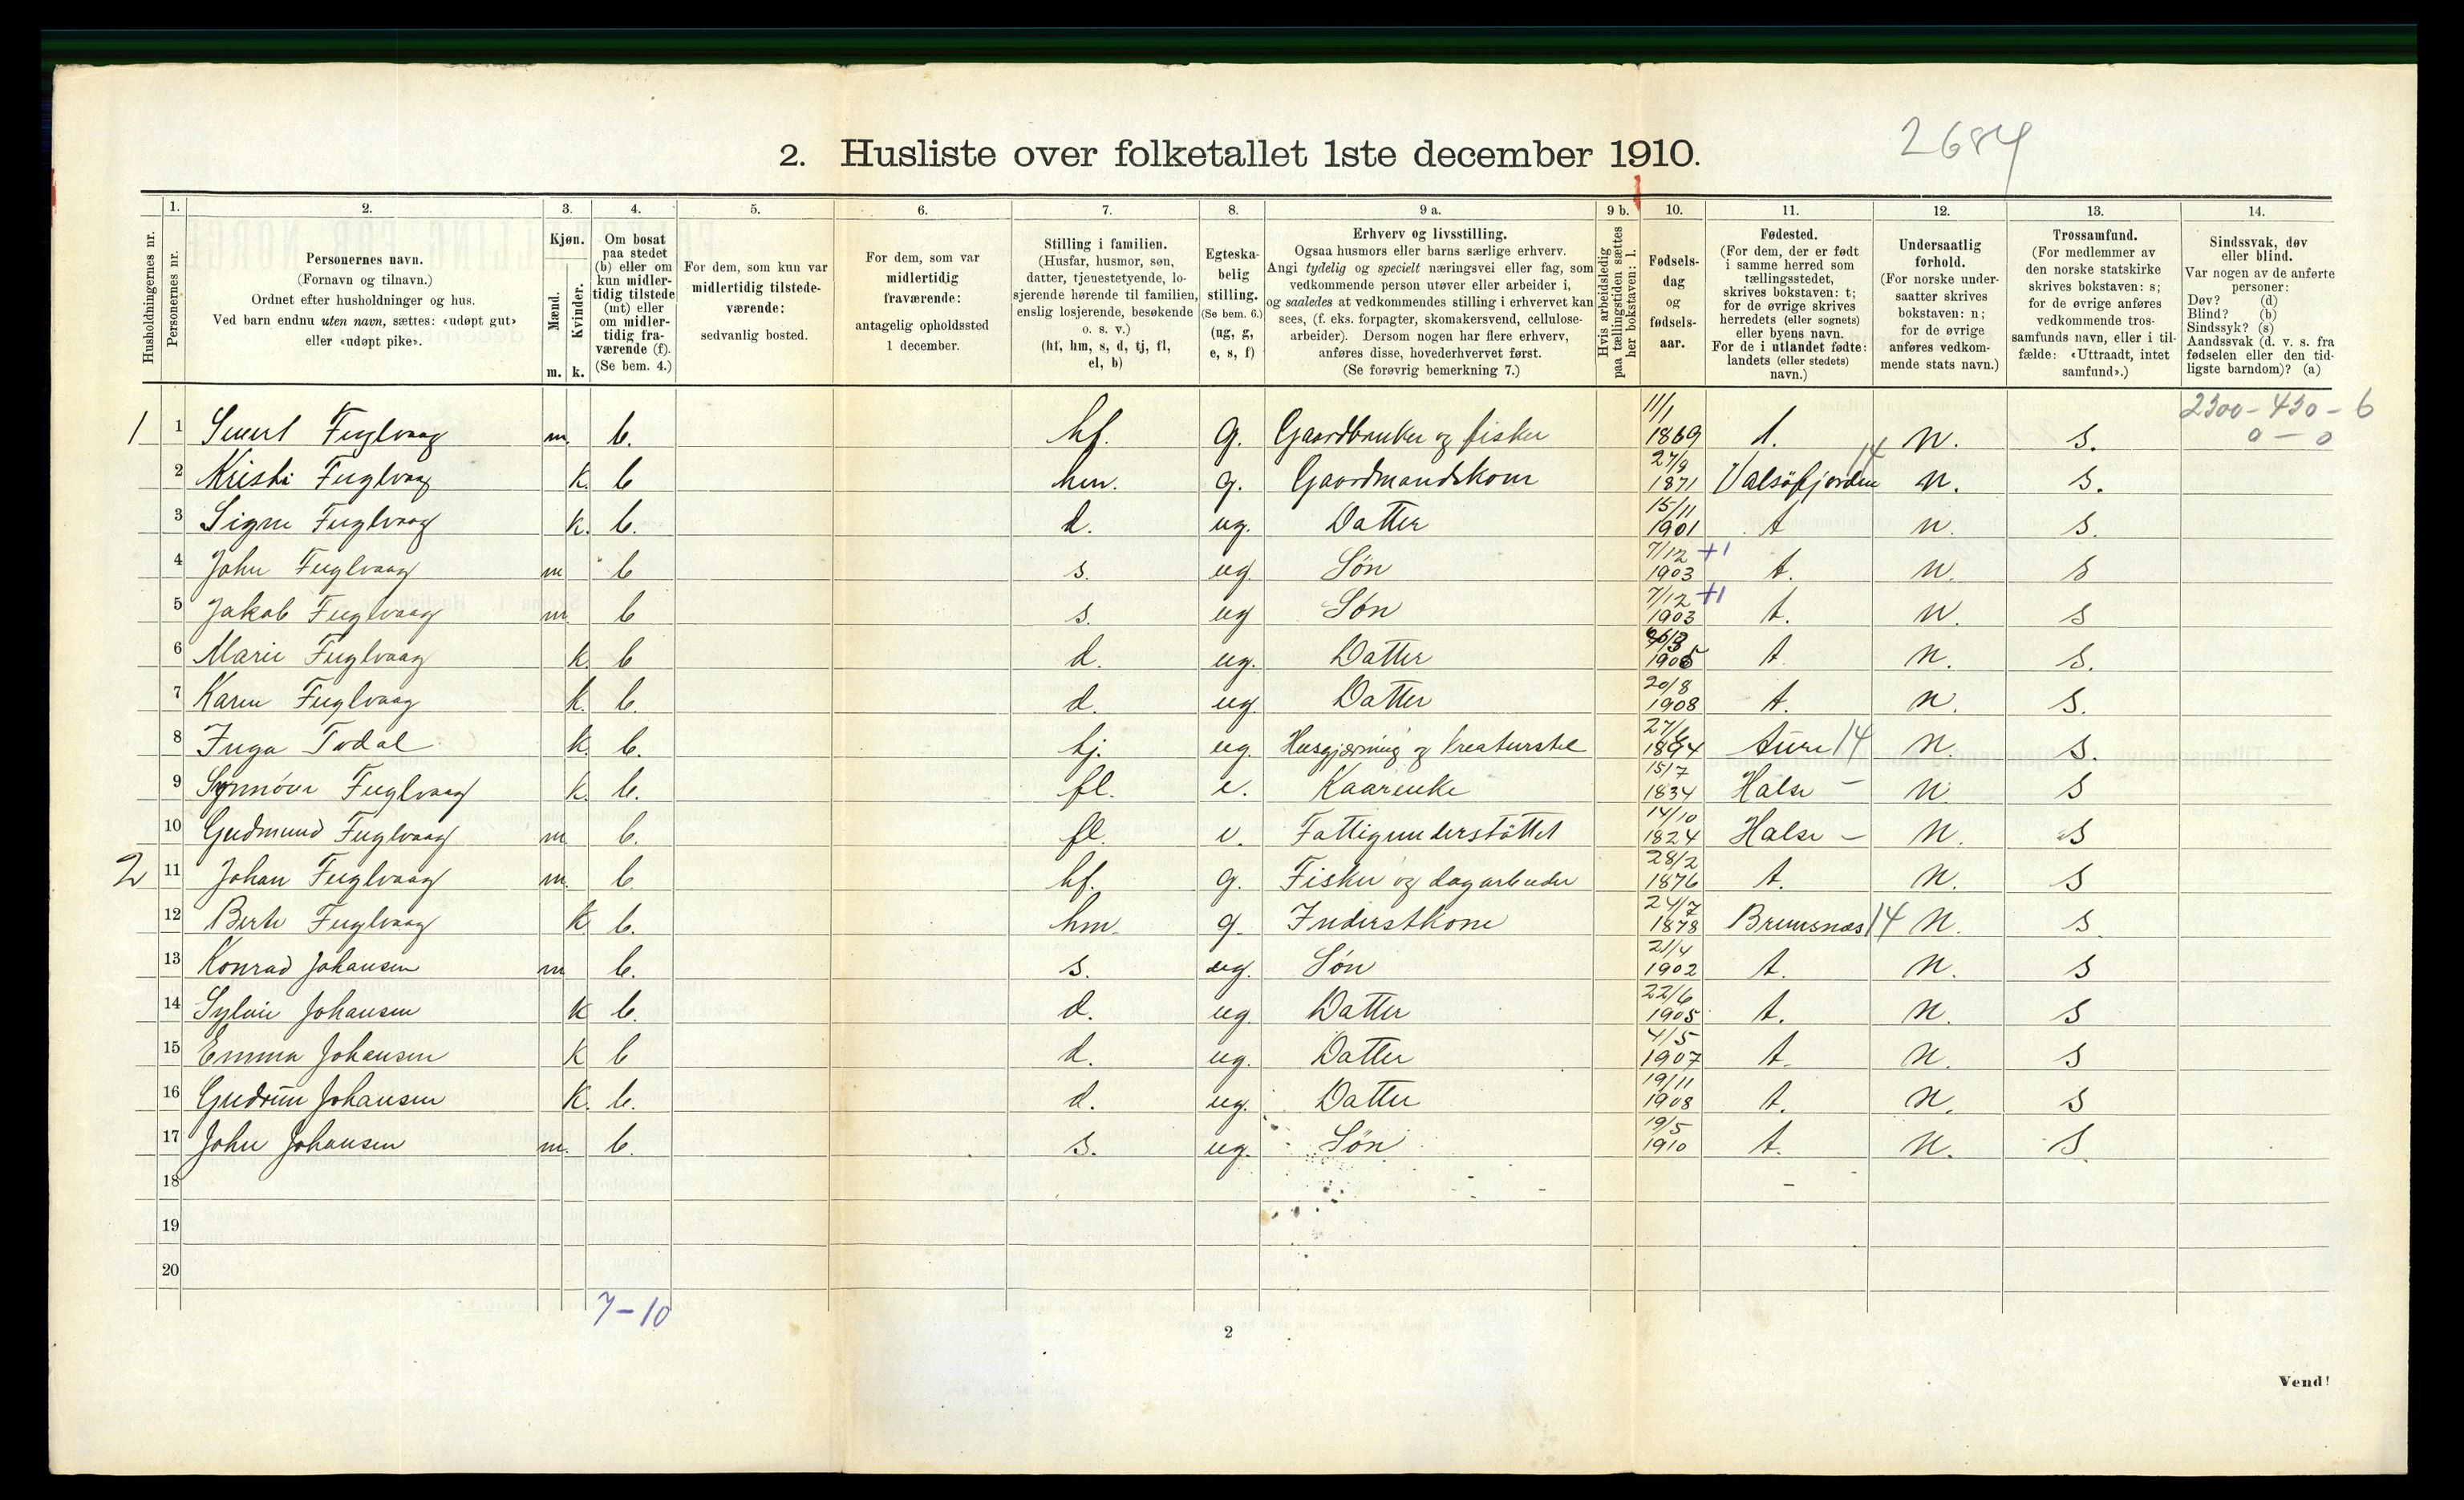 2684
2. Husliste over folketallet 1ste december 1910.
Husholdningernes nr.
1.
Personernes nr.
2.
Personernes navn.
(Fornavn og tilnavn.)
Ordnet efter husholdninger og hus.
Ved barn endnu uten navn, sættes: «udøpt gut»
eller «udøpt pike».
3.
Kjøn.
Mænd.
Kvinder.
m. k.
4.
Om bosat
paa stedet
(b) eller om
kun midler-
tidig tilstede
(mt) eller
om midler-
tidig fra-
værende (f).
(Se bem. 4.)
5.
For dem, som kun var
midlertidig tilstede-
værende:
sedvanlig bosted.
6.
For dem, som var
midlertidig
fraværende:
antagelig opholdssted
1 december.
7.
Stilling i familien.
(Husfar, husmor, søn,
datter, tjenestetyende, lo-
sjerende hørende til familien,
enslig losjerende, besøkende
o. s. v.)
(hf, hm, s, d, tj, fl,
el, b)
8.
Egteska-
belig
stilling.
(Se bem. 6.)
(ug, g,
e, s, f)
9 a.
Erhverv og livsstilling.
Ogsaa husmors eller barns særlige erhverv.
Angi tydelig og specielt næringsvei eller fag, som
vedkommende person utøver eller arbeider i,
og saaledes at vedkommendes stilling i erhvervet kan
sees, (f. eks. forpagter, skomakersvend, cellulose-
arbeider). Dersom nogen har flere erhverv,
anføres disse, hovederhvervet først.
(Se forøvrig bemerkning 7.)
9 b.
Hvis arbeidsledig
paa tællingstiden sættes
her bokstaven: l.
10.
Fødsels-
dag
og
fødsels-
aar.
11.
Fødested.
(For dem, der er født
i samme herred som
tællingsstedet,
skrives bokstaven: t;
for de øvrige skrives
herredets (eller sognets)
eller byens navn.
For de i utlandet fødte:
landets (eller stedets)
navn.)
12.
Undersaatlig
forhold.
(For norske under-
saatter skrives
bokstaven: n;
for de øvrige
anføres vedkom-
mende stats navn.)
13.
Trossamfund.
(For medlemmer av
den norske statskirke
skrives bokstaven: s;
for de øvrige anføres
vedkommende tros-
samfunds navn, eller i til-
fælde: «Uttraadt, intet
samfund».)
14.
Sindssvak, døv
eller blind.
Var nogen av de anførte
personer:
Døv? (d)
Blind? (b)
Sindssyk? (s)
Aandssvak (d. v. s. fra
fødselen eller den tid-
ligste barndom)? (a)
2300-430-6
0-0
1 1 Sivert Fuglvaag m. b. hf. g. Gaardbruker og fisker 11/1 1869 t. n. s.
2 Kristi Fuglvaag k. b hm. g. Gaardmandskone 27/9 1871 Valsöfjorden 14 n. s.
3 Signe Fuglvaag k. b. d. ug. Datter 15/11 1901 t n. s.
4 John Fuglvaag m b s. ug. Søn 7/12 +1 1903 t. n. s
5 Jakob Fuglvaag m. b s. ug Søn 7/12 +1 1903 t. n. s
6 Marie Fuglvaag k. b d. ug. Datter 1905 t n. s.
7 Karen Fuglvaag k. b. d. ug. Datter 20/8 1908 t. n. s.
8 Inga Todal k. b. tj. ug. Husgjærning og kreaturstel 27/6 1894 Aure 14 n. s.
9 Synnöve Fuglvaag k. b. fl. e. Kaarenke 15/7 1834 Halse - n. s
10 Gudmund Fuglvaag m. b. fl. e. Fattigunderstöttet 14/10 1824 Halse - n. s
2 11 Johan Fuglvaag m. b hf. g. Fisker og dagarbeider 28/2 1876 t. n. s
12 Berte Fuglvaag k b. hm. g. Inderstkone 24/7 1878 Bremsnæs 14 n. s.
13 Konrad Johansen m b. s. ug. Søn 21/4 1902 t. n. s
14 Sylvie Johansen k b. d. ug. Datter 22/6 1905 t. n. s
15 Emma Johansen k b d. ug. Datter 4/5 1907 t. n. s
16 Gudrun Johansen k. b. d. ug. Datter 19/11 1908 t. n. s
17 John Johansen m. b. s. ug. Søn 19/5 1910 t. n. s.
18
19
20
7-10
2
Vend!